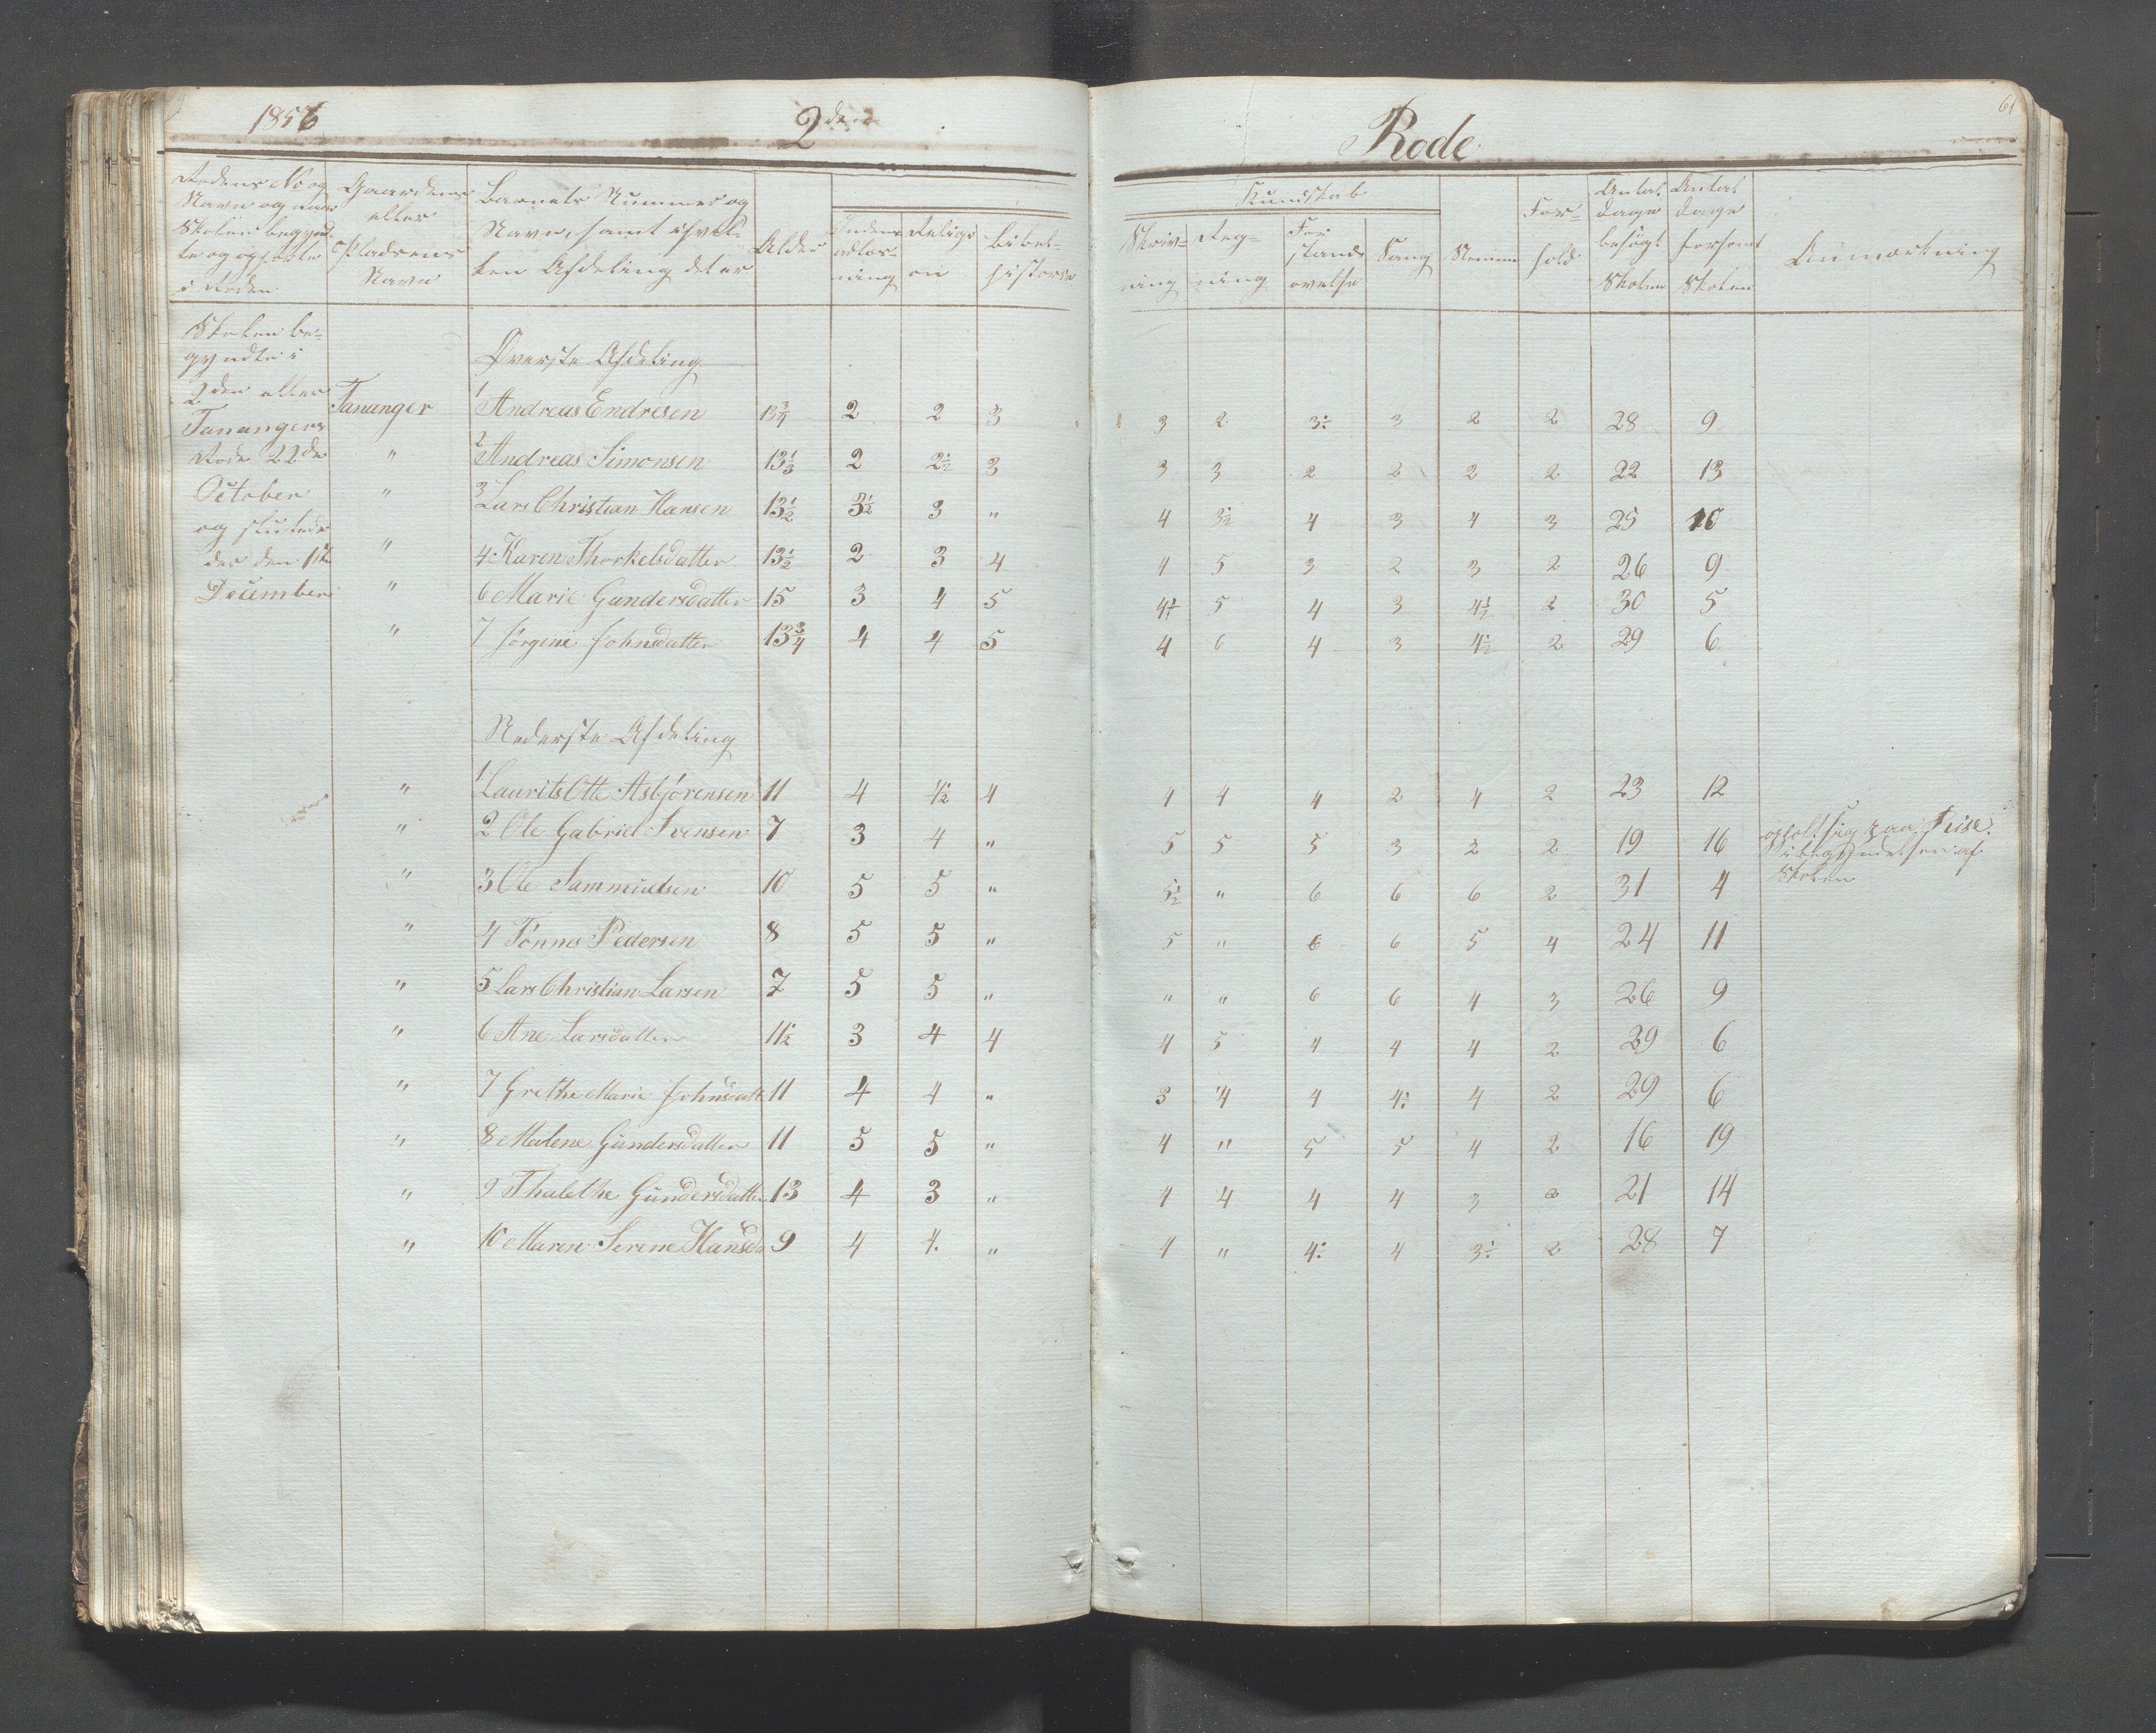 1856 2den Rode 61
Rodens No og Navn og naar Skolen begyndte og ophørte i Roden
Gaardens eller Pladsens Navn
Barnets Nummer og Navn, samt i hvilken Afdeling det er
Alder
Indenadlæsning
Religion
Bibelhistorie
Kundskab
Skrivning
Regning
Forstandsøvelse
Sang
Nemme
Forhold
Antal Dage besøgt Skolen
Antal Dage forsømt Skolen
Anmærkning
Skolen be-
gyndte i
2den eller
Tanangers
Rode 22de
October
og sluttede
der den 1ste
December
Øverste Afdeling
Tananger 1 Andreas Endresen 13 3/4 2 2 3 3 2 3 1/2 3 2 2 28 9
" 2 Andreas Simonsen 13 1/3 2 2 1/2 3 3 3 2 2 2 2 22 13
" 3 Lars Christian Hansen 13 1/2 3 1/2 3 " 4 3 1/2 4 3 4 3 25 10
" 4 Karen Thorkelsdatter 13 1/2 2 3 4 4 5 3 2 3 2 26 9
" 6 Marie Gundersdatter 15 3 4 5 4 1/2 5 4 3 4 1/2 2 30 5
" 7 Jørgine Johnsdatter 13 3/4 4 4 5 4 6 4 3 4 1/2 2 29 6
Nederste Afdeling
" 1 Laurits Otte Asbjörensen 11 4 4 1/2 4 4 4 4 2 4 2 23 12
" 2 Ole Gabriel Svensen 7 3 4 " 5 5 5 3 2 2 19 16 opholt sig paa Risе i begyndelsen af Skolen
" 3 Ole Sammuelsen 10 5 5 " 5 1/2 " 6 6 6 2 31 4
" 4 Tönnes Pedersen 8 5 5 " 5 " 6 6 5 4 24 11
" 5 Lars Christian Larsen 7 5 5 " " " 6 6 4 3 26 9
" 6 Ane Larsdatter 11 1/2 3 4 4 4 5 4 4 4 2 29 6
" 7 Grethe Marie Johnsdatt 11 4 4 " 3 4 4 4 1/2 4 2 29 6
" 8 Malene Gundersdatter 11 5 5 " 4 " 5 5 4 2 16 19
" 9 Thalethe Gundersdatter 13 4 3 " 4 4 4 4 3 2 21 14
" 10 Maren Serine Hansd 9 4 4 " 4 " 4 1/2 4 3 1/2 2 28 7